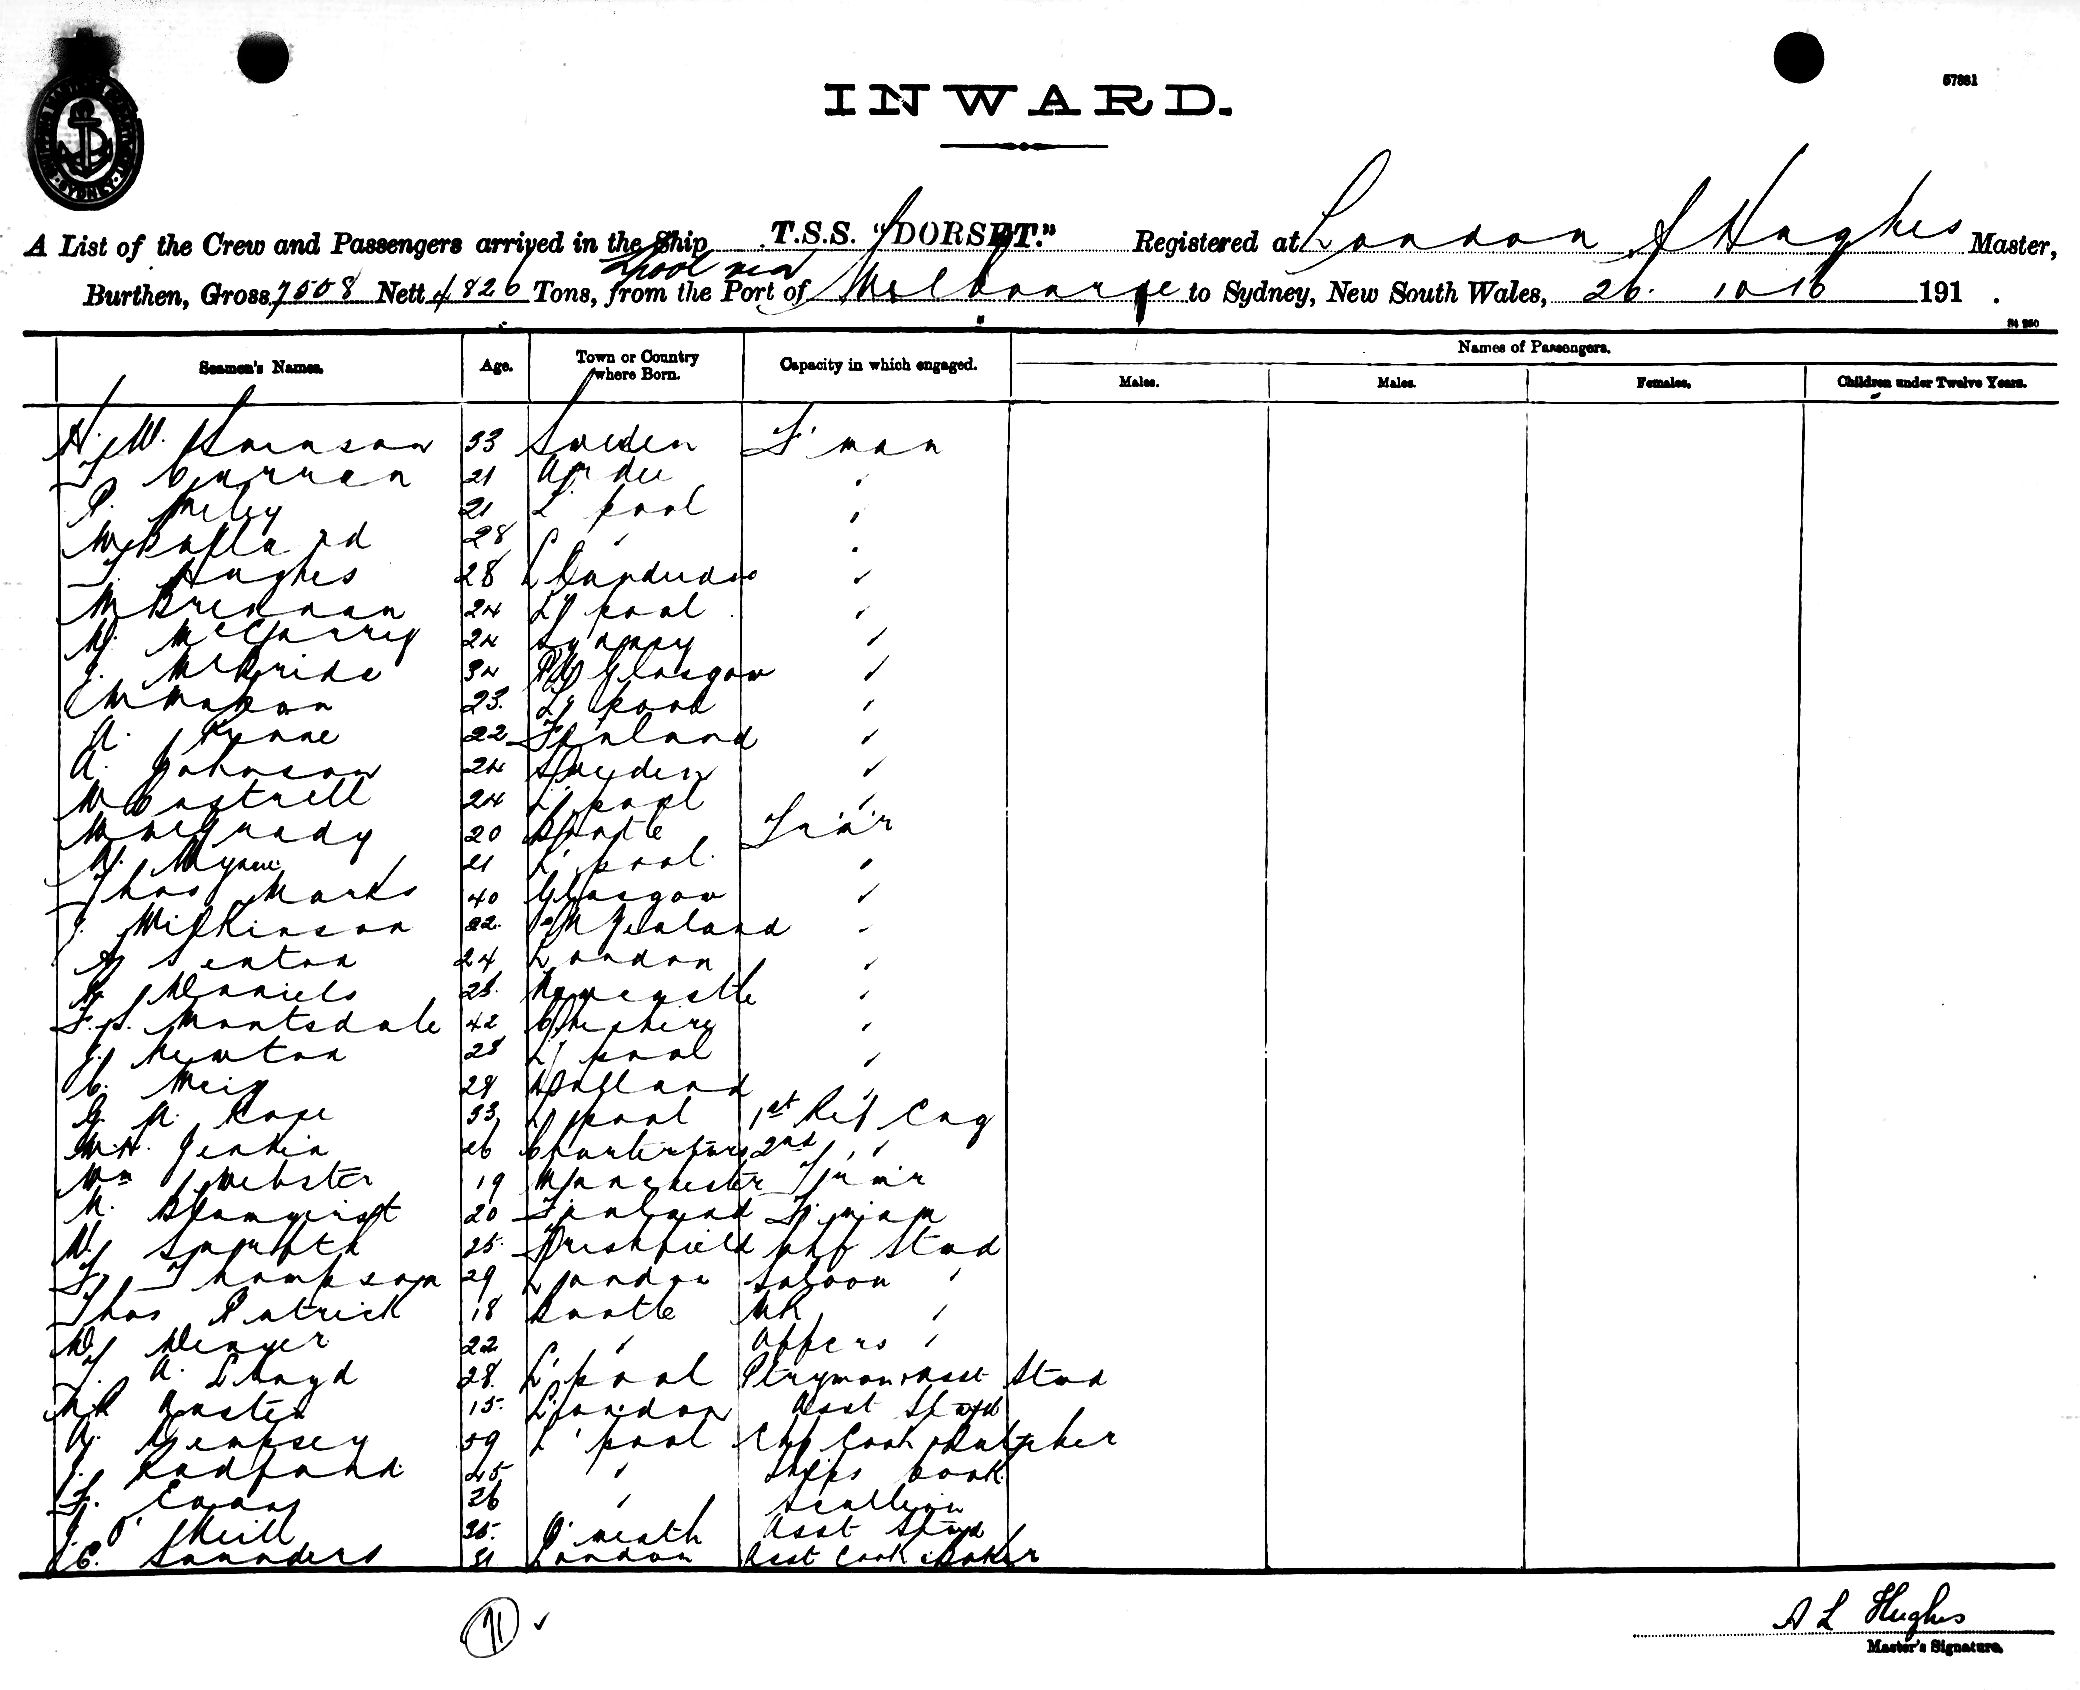 57381
INWARD.
A List of the Crew and Passengers arrived in the Ship T.S.S. "DORSET." Registered at London A Hughes Master,
L'pool via
Burthen, Gross 7508 Nett 4826 Tons, from the Port of Melbourne to Sydney, New South Wales, 26. 10 16 191 .
Seamen's Names. Age. Town or Country where Born. Capacity in which engaged. Names of Passengers.
Males. Males. Females. Children under Twelve Years.
H. W. Swenson 33 Sweden F'man
T Curran 21 Ardee "
P. 21 L'pool "
W 28 " "
T. Hughes 28 Llandudno "
M Brennan 24 L'pool "
W. McGarrig 24 Sydney "
J. McBride 34 Pt Glasgow "
W Mahon 23 L'pool "
A. 22 Finland "
A. Johnson 24 Sweden "
W 24 L'pool "
W McGrady 20 Bootle Trim'r
W. 21 L'pool "
Thos Marks 40 Glasgow "
J. Wilkinson 22 N Zealand "
A Senton 24 London "
Daniels 26 Newcastle "
F. S. Mountsdale 42 Cheshire "
J. Newton 28 L'pool "
C. 24 Holland "
G. A. Rose 33 L'pool 1st Ref Eng
W. H. Jenkin 26 Charterford 2nd " "
Wm Webster 19 Manchester Trim'r
A. Blomqvist 20 Finland F'man
W. 25 Freshfield Chf Stwd
F. Thompson 29 London Saloon "
Thos Patrick 18 Bootle MR "
W. 22 " Offcrs "
T. A. Lloyd 28 L'pool Ptryman & Asst Stwd
Austen 15 London Asst Stwd
A. Dempsey 59 L'pool Chf Cook & Butcher
J. Radford 45 " Ships Cook
F. Evans 26 " Scullion
J. O'Neill 35 O'meath Asst Stwd
C. Saunders 51 London Asst Cook & Baker
71
A L Hughes
Master's Signature.